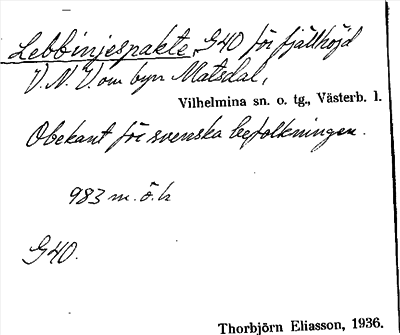 Lebbinjespakte, G40 för fjällhöjd
V.N.V. om byn Matsdal,
Vilhelmina sn. o. tg., Västerb. l.
Obekant för svenska befolkningen.
983 m.ö.h
G40.
Thorbjörn Eliasson, 1936.